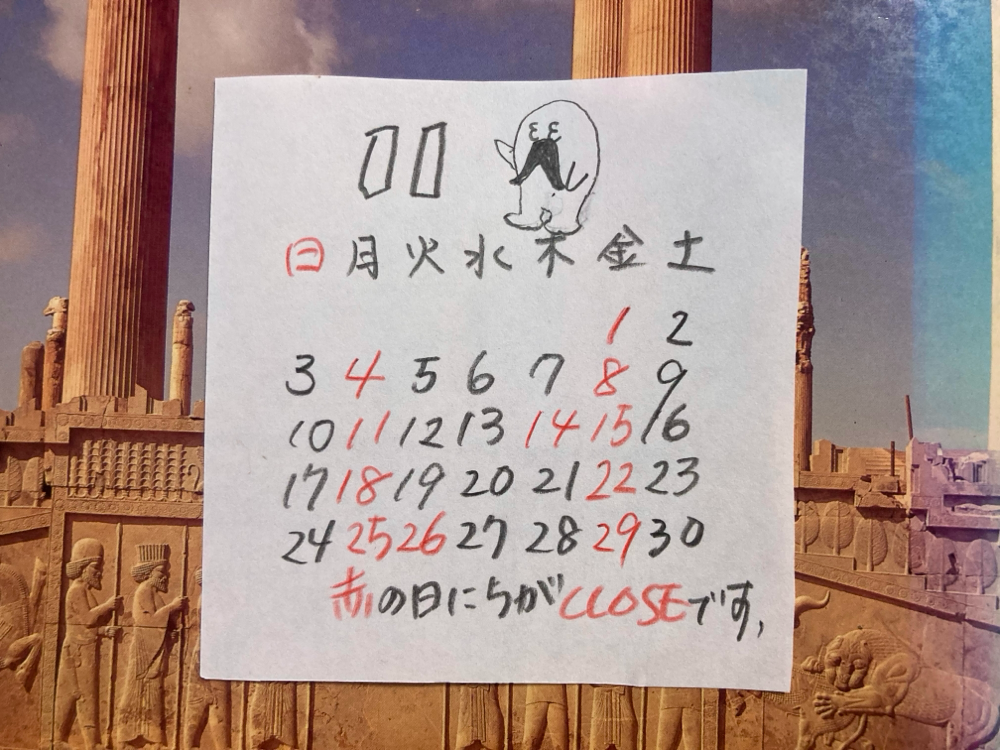 11
日 月 火 水 木 金 土
1 2
3 4 5 6 7 8 9
10 11 12 13 14 15 16
17 18 19 20 21 22 23
24 25 26 27 28 29 30
赤の日にちがCLOSEです,